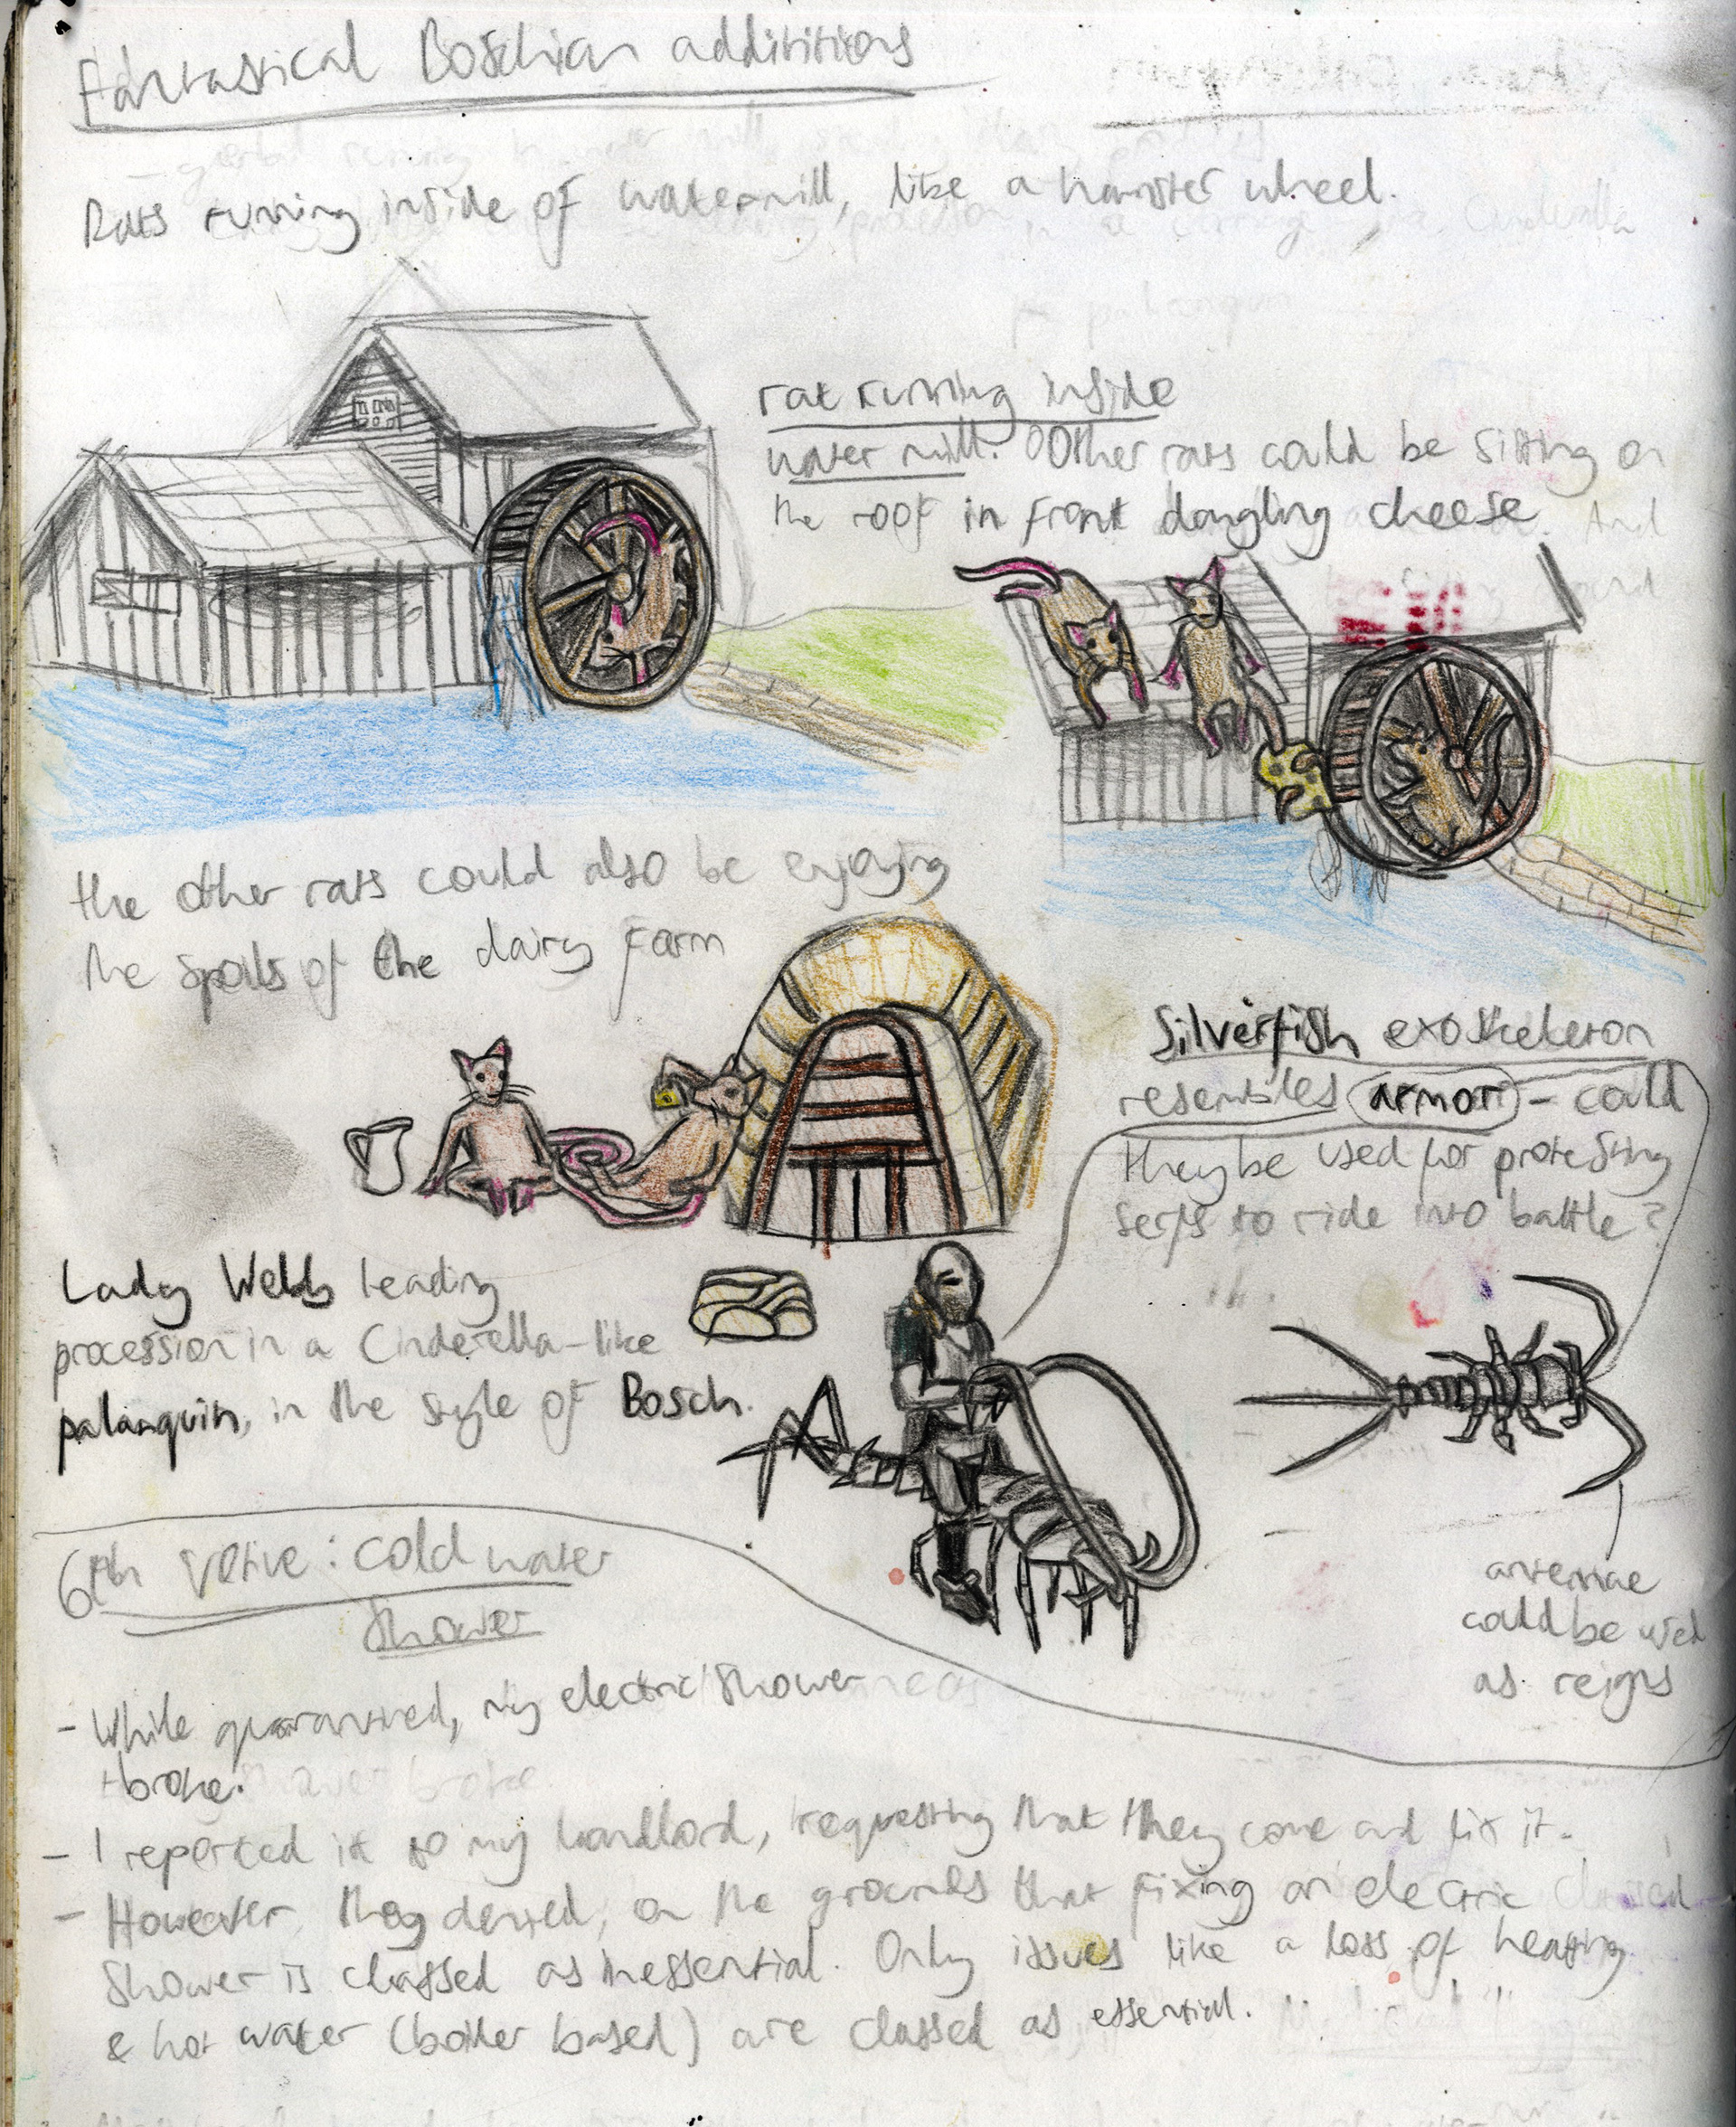 Fantastical Boschian addititions
Rats running inside of watermill, like a hamster wheel.
rat running inside
water mill. Other rats could be sitting on
the roof in front dangling cheese
the other rats could also be enjoying
the spoils of the dairy farm
Silverfish exoskeleton
resembles armor - could
they be used for protesting
serfs to ride into battle?
Lady Webb leading
procession in a Cinderella-like
palanquin, in the style of Bosch.
antennae
could be used
as reigns
6th Votive: cold water
shower
- While quarantined, my electric shower
broke.
- I reported it to my landlord, requesting that they come and fix it.
- However, they denied, on the grounds that fixing an electric
shower is classed as inessential. Only issues like a loss of heating
& hot water (boiler based) are classed as essential.